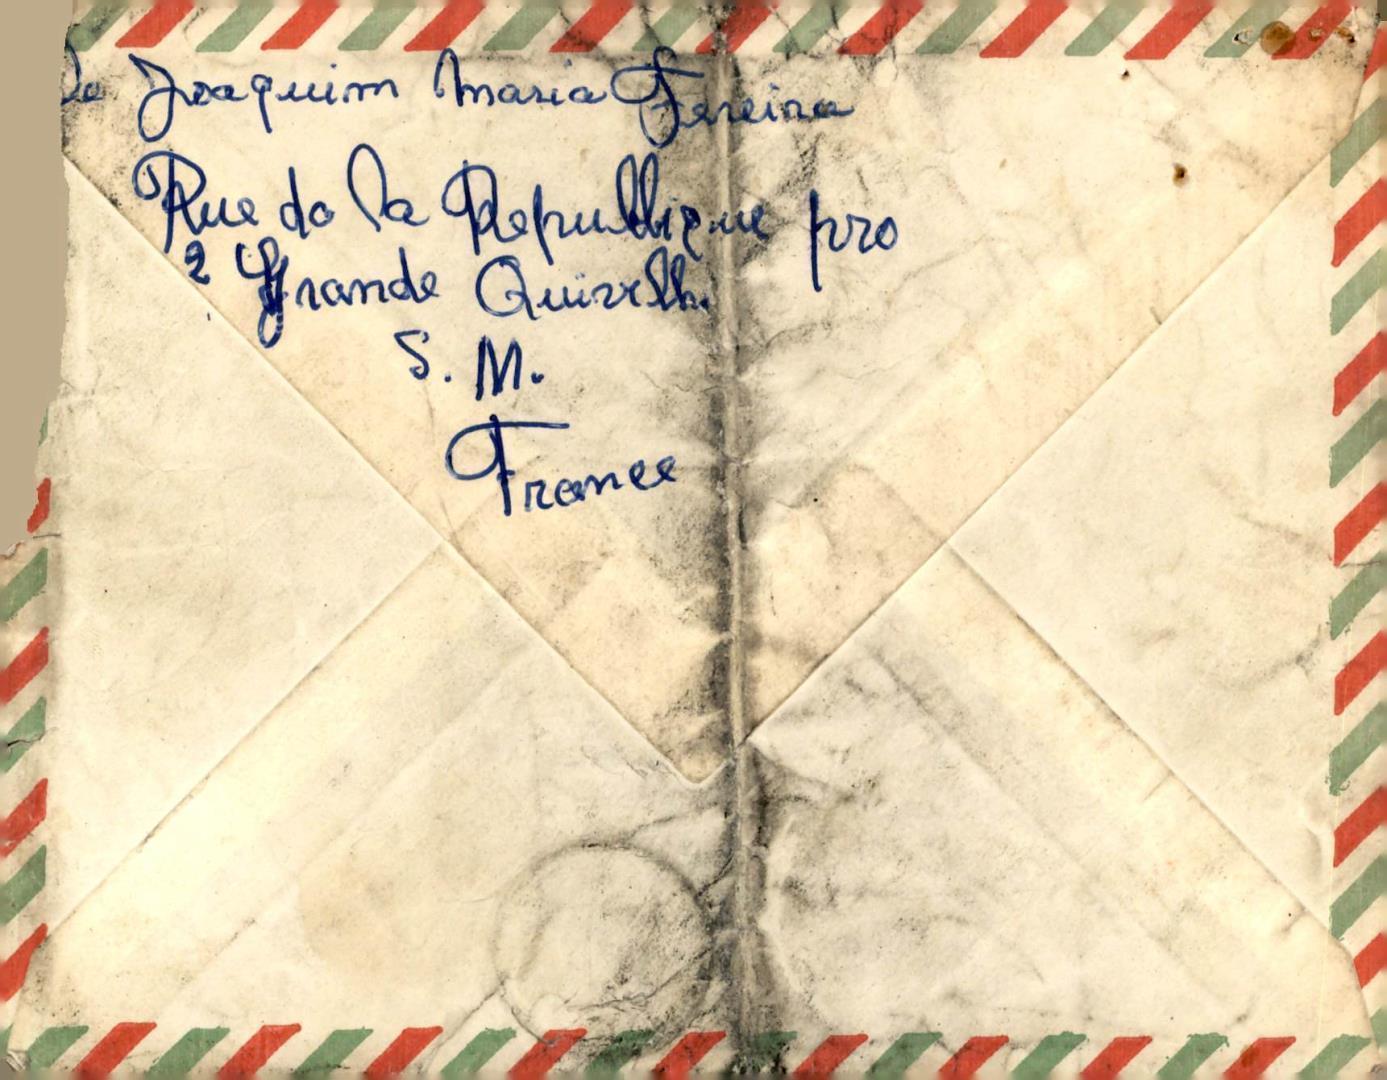 De Joaquim Maria Fereira
Rue do la Republique pro
2 Grande Quivelh.
S. M.
France